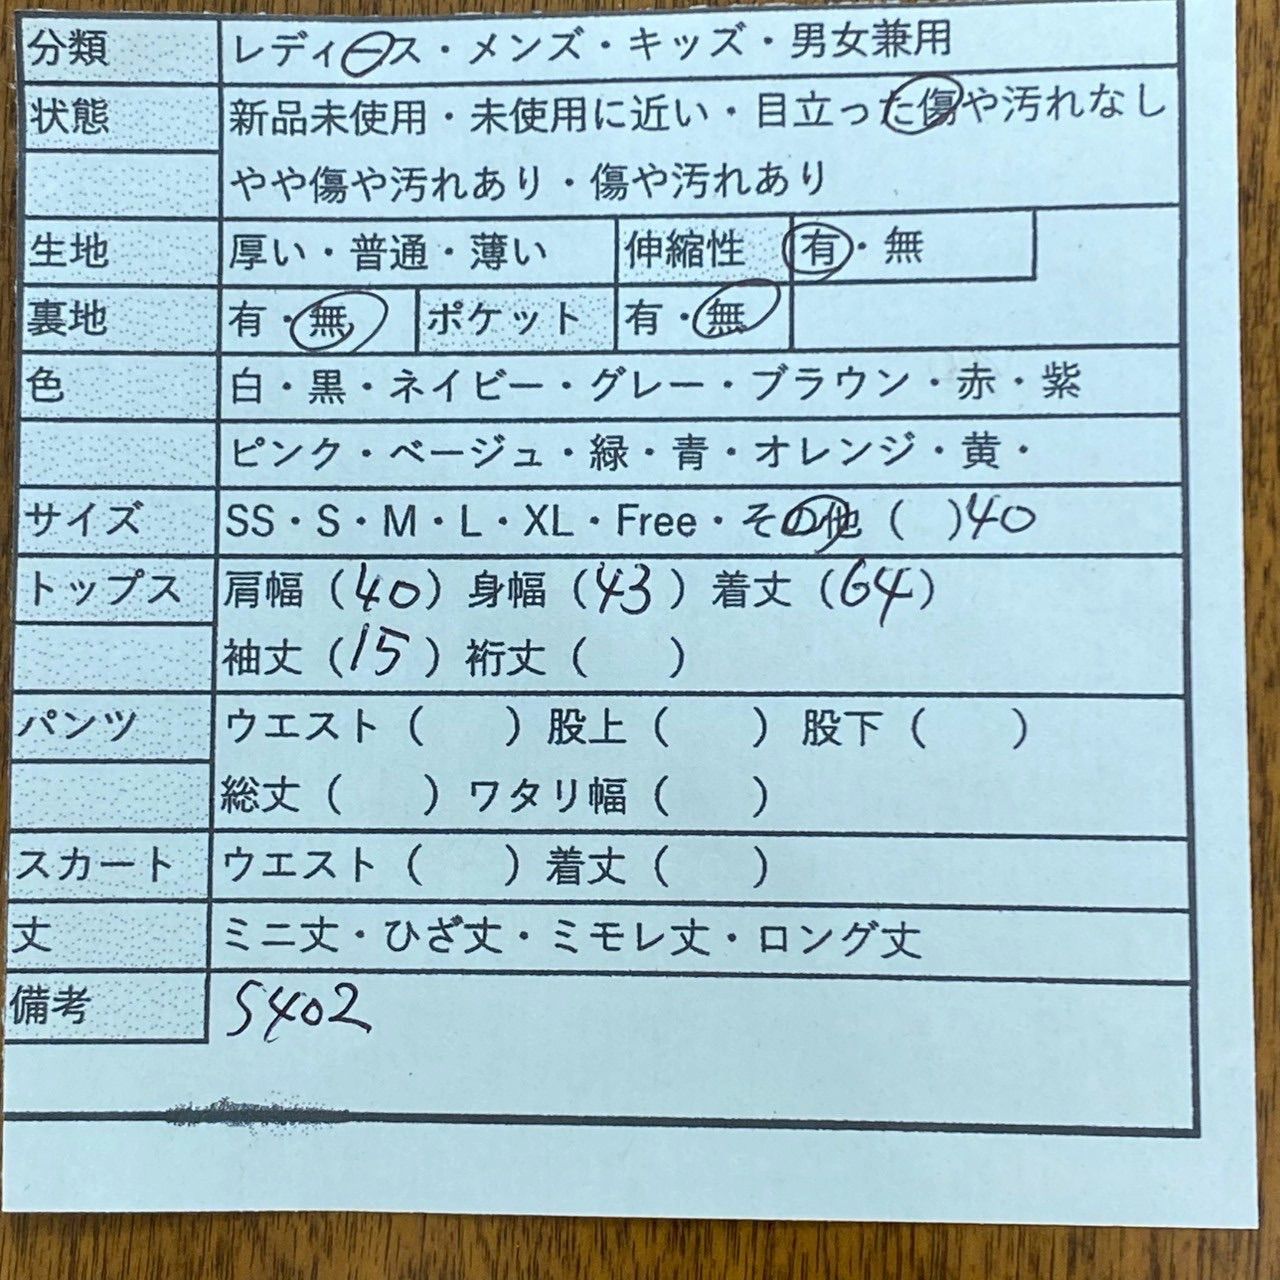 分類 レディース・メンズ・キッズ・男女兼用
状態 新品未使用・未使用に近い・目立った傷や汚れなし
やや傷や汚れあり・傷や汚れあり
生地 厚い・普通・薄い 伸縮性 有・無
裏地 有・無 ポケット 有・無
色 白・黒・ネイビー・グレー・ブラウン・赤・紫
ピンク・ベージュ・緑・青・オレンジ・黄・
サイズ SS・S・M・L・XL・Free・その他 ( )40
トップス 肩幅（40）身幅（43）着丈（64）
袖丈（15）裄丈（ ）
パンツ ウエスト（ ）股上（ ）股下（ ）
総丈（ ）ワタリ幅（ ）
スカート ウエスト（ ）着丈（ ）
丈 ミニ丈・ひざ丈・ミモレ丈・ロング丈
備考 S402